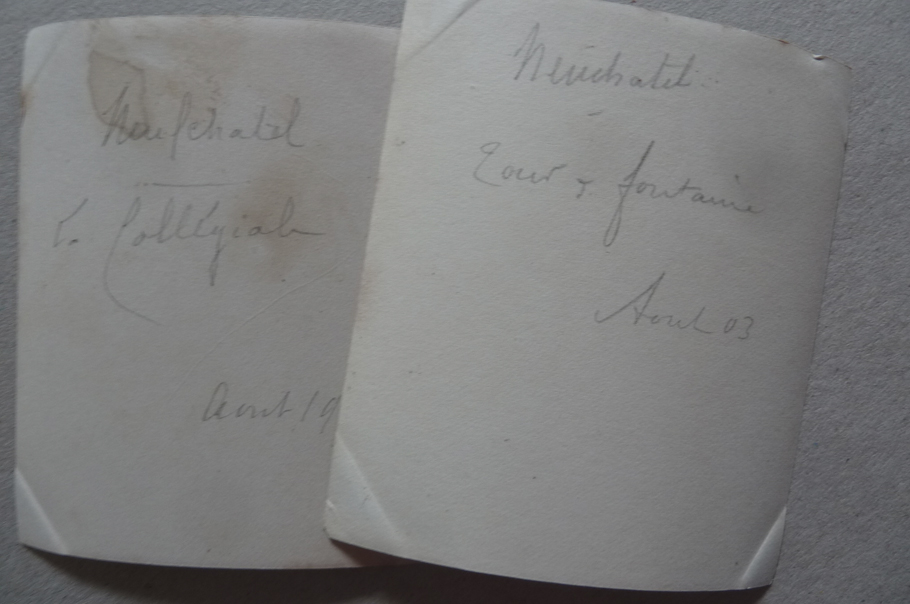 Neufchatel
La Collégiale
Aout 19
Neuchatel
Tour & fontaine
Aout 03